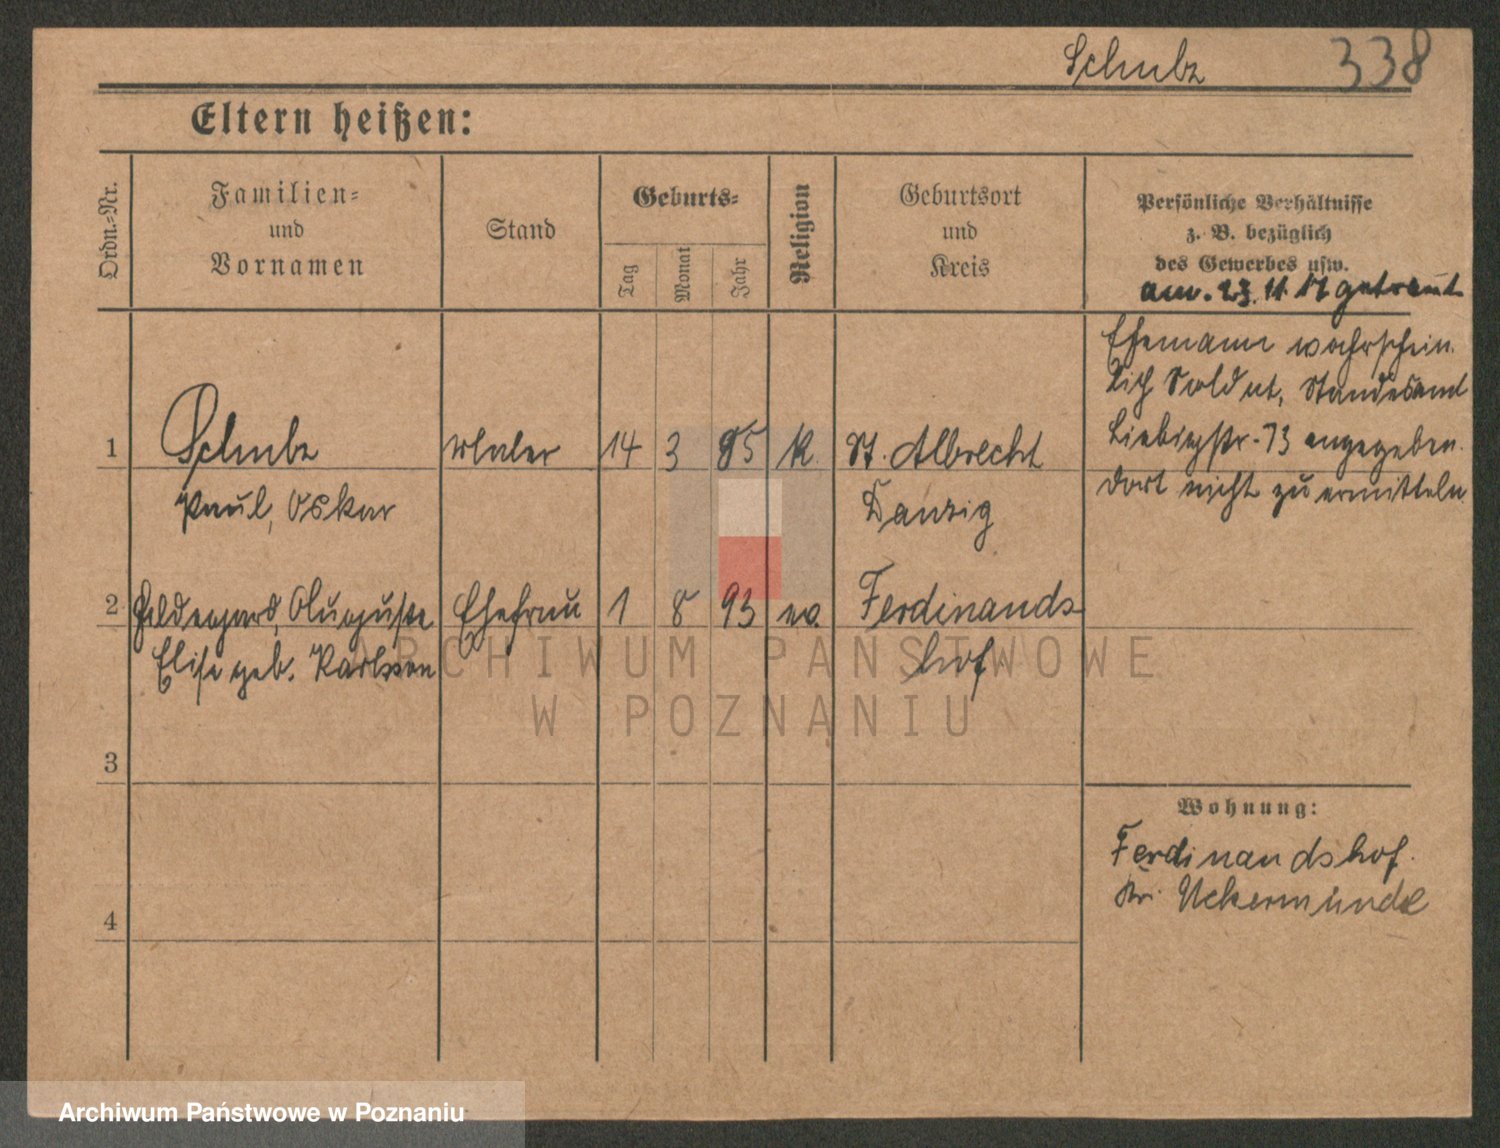 Schulz 338
Eltern heißen:
Ordn.-Nr.
Familien-
und
Vornamen
Stand
Geburts-
Tag
Monat
Jahr
Religion
Geburtsort
und
Kreis
Persönliche Verhältnisse
z. B. bezüglich
des Gewerbes usw.
am. 23. 11. 17 getraut
Ehemann wahrschein
lich Soldat, Standesamt
1 Schulz Maler 14 3 85 k. St. Albrecht
Liebigstr. 73 angegeben.
Paul, Oskar Danzig
dort nicht zu ermitteln.
2 Hildegard, Auguste Ehefrau 1 8 93 ev. Ferdinands
Elise geb. Karlsson hof.
ARCHIWUM PAŃSTWOWE
W POZNANIU
3
Wohnung:
Ferdinandshof.
Kr. Uckermünde
4
Archiwum Państwowe w Poznaniu